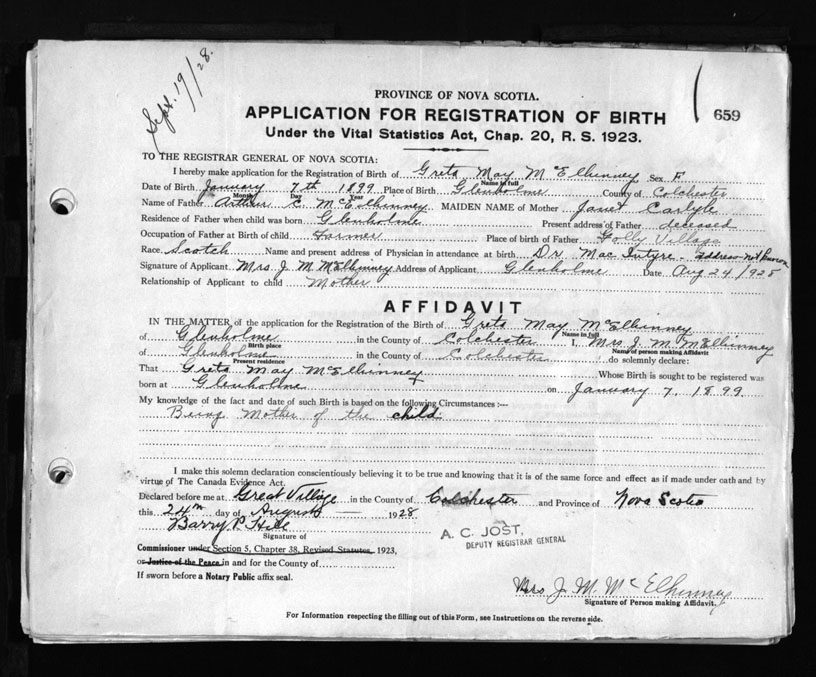 Sept. 19/28.
PROVINCE OF NOVA SCOTIA.
APPLICATION FOR REGISTRATION OF BIRTH
659
Under the Vital Statistics Act, Chap. 20, R. S. 1923.
TO THE REGISTRAR GENERAL OF NOVA SCOTIA:
I hereby make application for the Registration of Birth of Greta May McElhinney Sex F
Name in full
Date of Birth January 7th 1899 Place of Birth Glenholme County of Colchester
Month Day Year
Name of Father Arthur C. McElhinney MAIDEN NAME of Mother Janet Carlyle
Residence of Father when child was born Glenholme Present address of Father deceased
Occupation of Father at Birth of child Farmer Place of birth of Father Folly Village
Race Scotch Name and present address of Physician in attendance at birth Dr Mac Intyre - address not known
Signature of Applicant Mrs J. M McElhinney Address of Applicant Glenholme Date Aug 24/1928
Relationship of Applicant to child Mother
AFFIDAVIT
IN THE MATTER of the application for the Registration of the Birth of Greta May McElhinney
Name in full
of Glenholme in the County of Colchester I, Mrs J. M. McElhinney
Birth place Name of person making Affidavit
of Glenholme in the County of Colchester do solemnly declare:
Present residence
That Greta May McElhinney Whose Birth is sought to be registered was
born at Glenholme on January 7, 1899
My knowledge of the fact and date of such Birth is based on the following Circumstances :—
Being Mother of the child
I make this solemn declaration conscientiously believing it to be true and knowing that it is of the same force and effect as if made under oath and by
virtue of The Canada Evidence Act.
Declared before me at Great Village in the County of Colchester and Province of Nova Scotia
this 24th day of August 1928
Barry P. Hill
Signature of
A. C. JOST,
DEPUTY REGISTRAR GENERAL
Commissioner under Section 5, Chapter 38, Revised Statutes, 1923,
or Justice of the Peace in and for the County of
If sworn before a Notary Public affix seal.
Mrs J. M. McElhinney
Signature of Person making Affidavit.
For Information respecting the filling out of this Form, see Instructions on the reverse side.